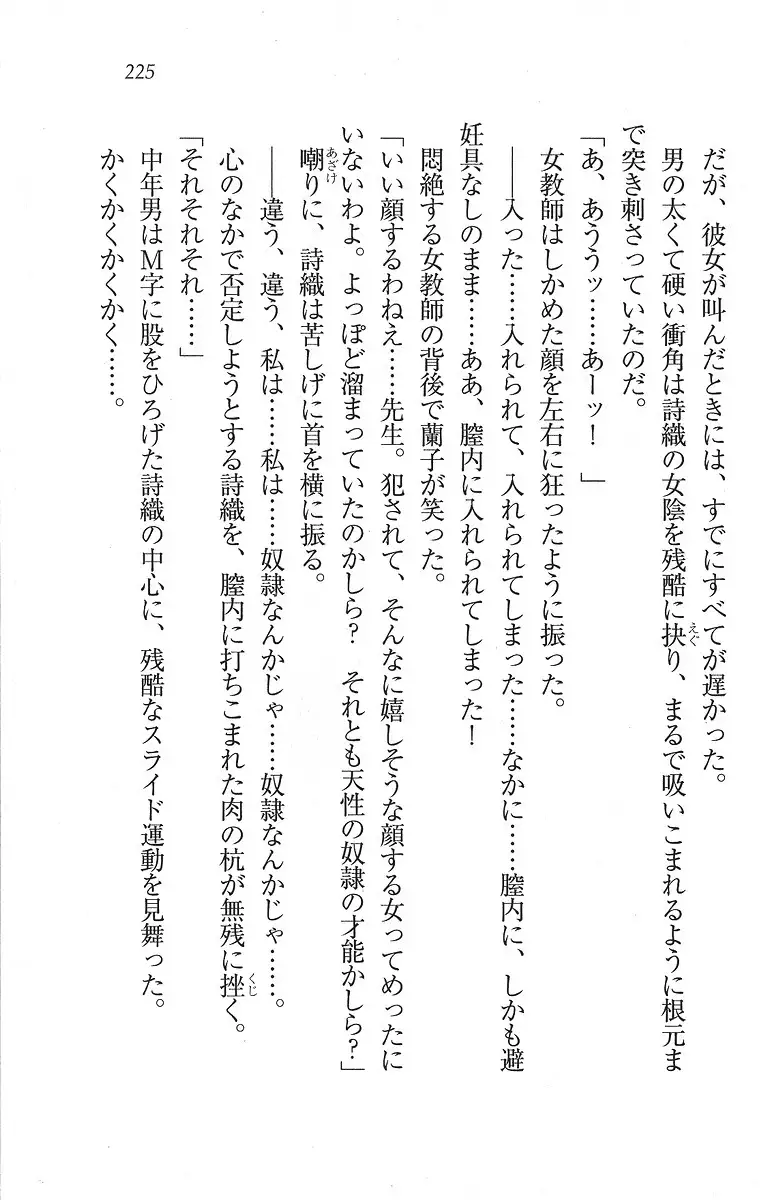 225
だが、彼女が叫んだときには、すでにすべてが遅かった。
えぐ
男の太くて硬い衝角は詩織の女陰を残酷に抉り、まるで吸いこまれるように根元ま
で突き刺さっていたのだ。
「あ、あううッ……あーッ！　」
女教師はしかめた顔を左右に狂ったように振った。
――入った……入れられて、入れられてしまった……なかに……膣内に、しかも避
妊具なしのまま……ああ、膣内に入れられてしまった！
悶絶する女教師の背後で蘭子が笑った。
「いい顔するわねえ……先生。犯されて、そんなに嬉しそうな顔する女ってめったに
いないわよ。よっぽど溜まっていたのかしら？　それとも天性の奴隷の才能かしら？」
あざけ
嘲りに、詩織は苦しげに首を横に振る。
――違う、違う、私は……私は……奴隷なんかじゃ……奴隷なんかじゃ……。
くじ
心のなかで否定しようとする詩織を、膣内に打ちこまれた肉の杭が無残に挫く。
「それそれそれ……」
中年男はＭ字に股をひろげた詩織の中心に、残酷なスライド運動を見舞った。
かくかくかくかく……。